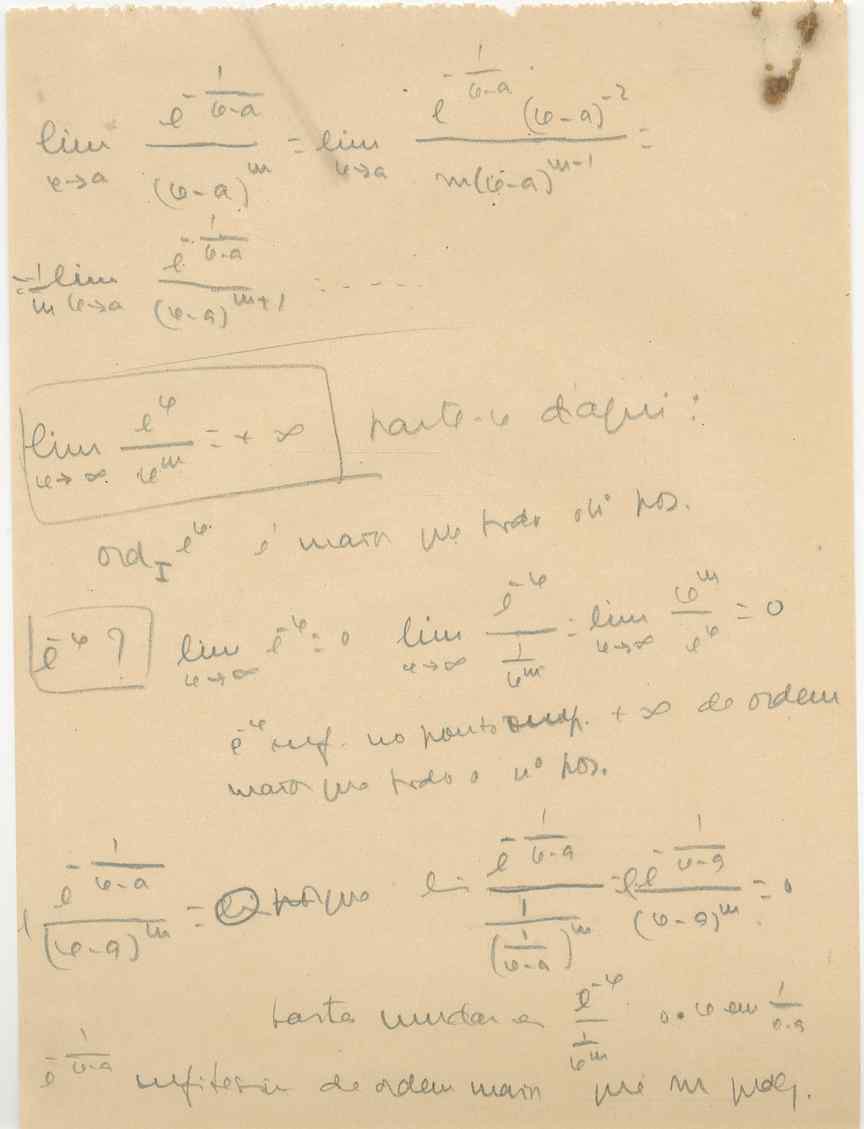 lim_{x→a} e^{-1/(x-a)} / (x-a)^m = lim_{x→a} e^{-1/(x-a)} (x-a)^{-2} / m(x-a)^{m-1} =
= 1/m lim_{x→a} e^{-1/(x-a)} / (x-a)^{m+1} = .....
lim_{x→∞} e^x / x^m = + ∞ parte-se d'aqui:
ord_I e^x é maior que todo o nº pos.
e^{-x} ? lim_{x→∞} e^{-x} = 0 lim_{x→∞} e^{-x} / (1/x^m) = lim_{x→∞} x^m / e^x = 0
e^{-x} inf. no ponto imp. + ∞ de ordem
maior que todo o nº pos.
e^{-1/(x-a)} / (x-a)^m = porque e^{-1/(x-a)} / (1/(1/(x-a))^m) = e^{-1/(x-a)} / (x-a)^m = 0
basta mudar em e^{-x} / (1/x^m) o x em 1/(x-a)
e^{-1/(x-a)} de ordem maior que m